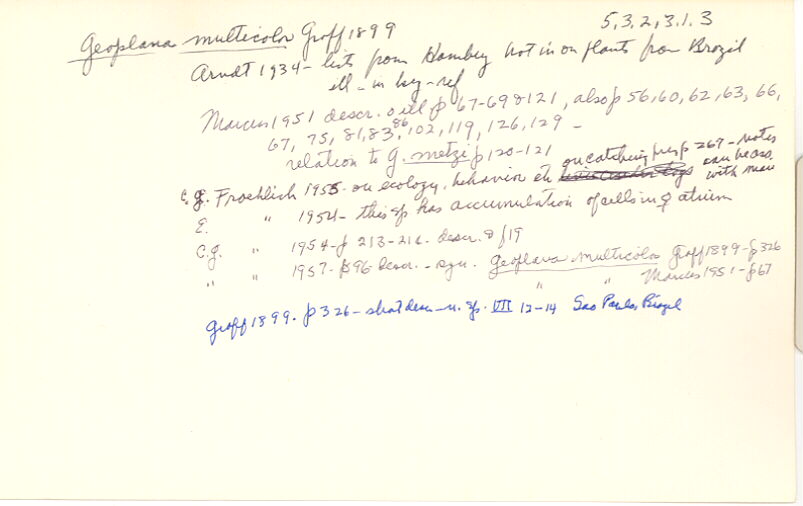 5,3,2,3,1.3
Geoplana multicolor Graff 1899
Arndt 1934 - lists from Hamburg hot in on plants from Brazil
ill - in key - ref
Marcus 1951 descr. & ill p 67-69 & 121, also p 56, 60, 62, 63, 66,
67, 75, 81, 83, 86, 102, 119, 126, 129 -
relation to G. metzi p 120-121
C.G. Froehlich 1955 - on ecology, behavior etc on catching prey p 267 - notes
can be ass. with man
E. " 1954 - this sp has accumulation of cells in ♀ atrium
C.G. " 1954 - p 213-216 - descr. & f 19
" " 1957 - p 96 descr. - syn. Geoplana multicolor Graff 1899 - p 326
" " Marcus 1951 - p 67
Graff 1899. p 326 - short descr - n. sp. VII 12-14 Sao Paulo, Brazil